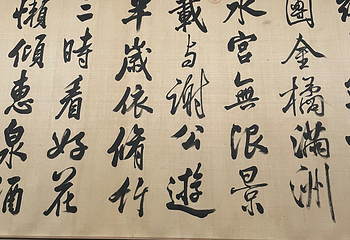 團金橘滿洲
水宮無限景
載与謝公遊
半歲依脩竹
三時看好花
懶傾惠泉酒